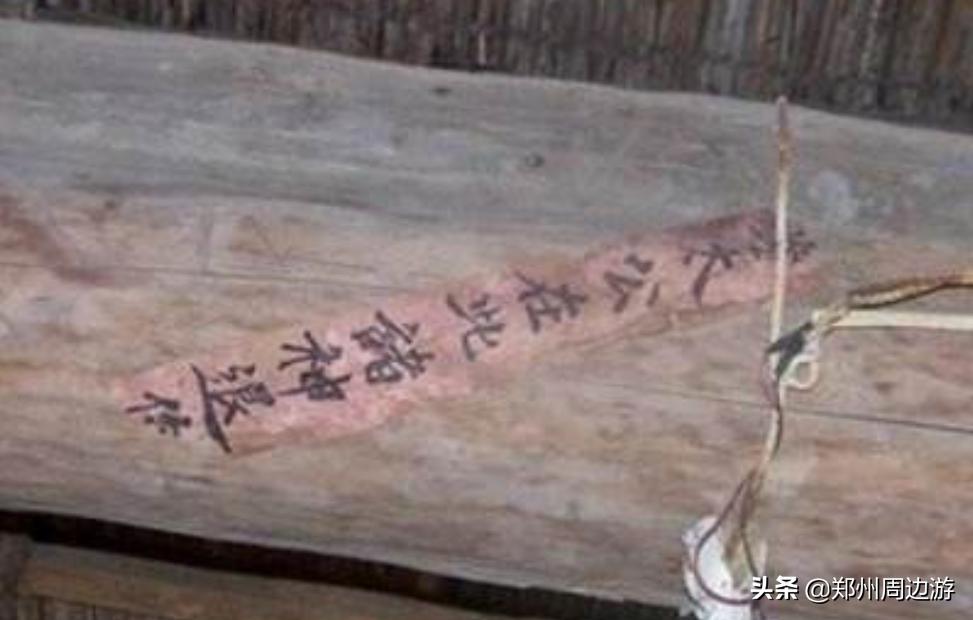 太公在此諸神退位
头条 @郑州周边游